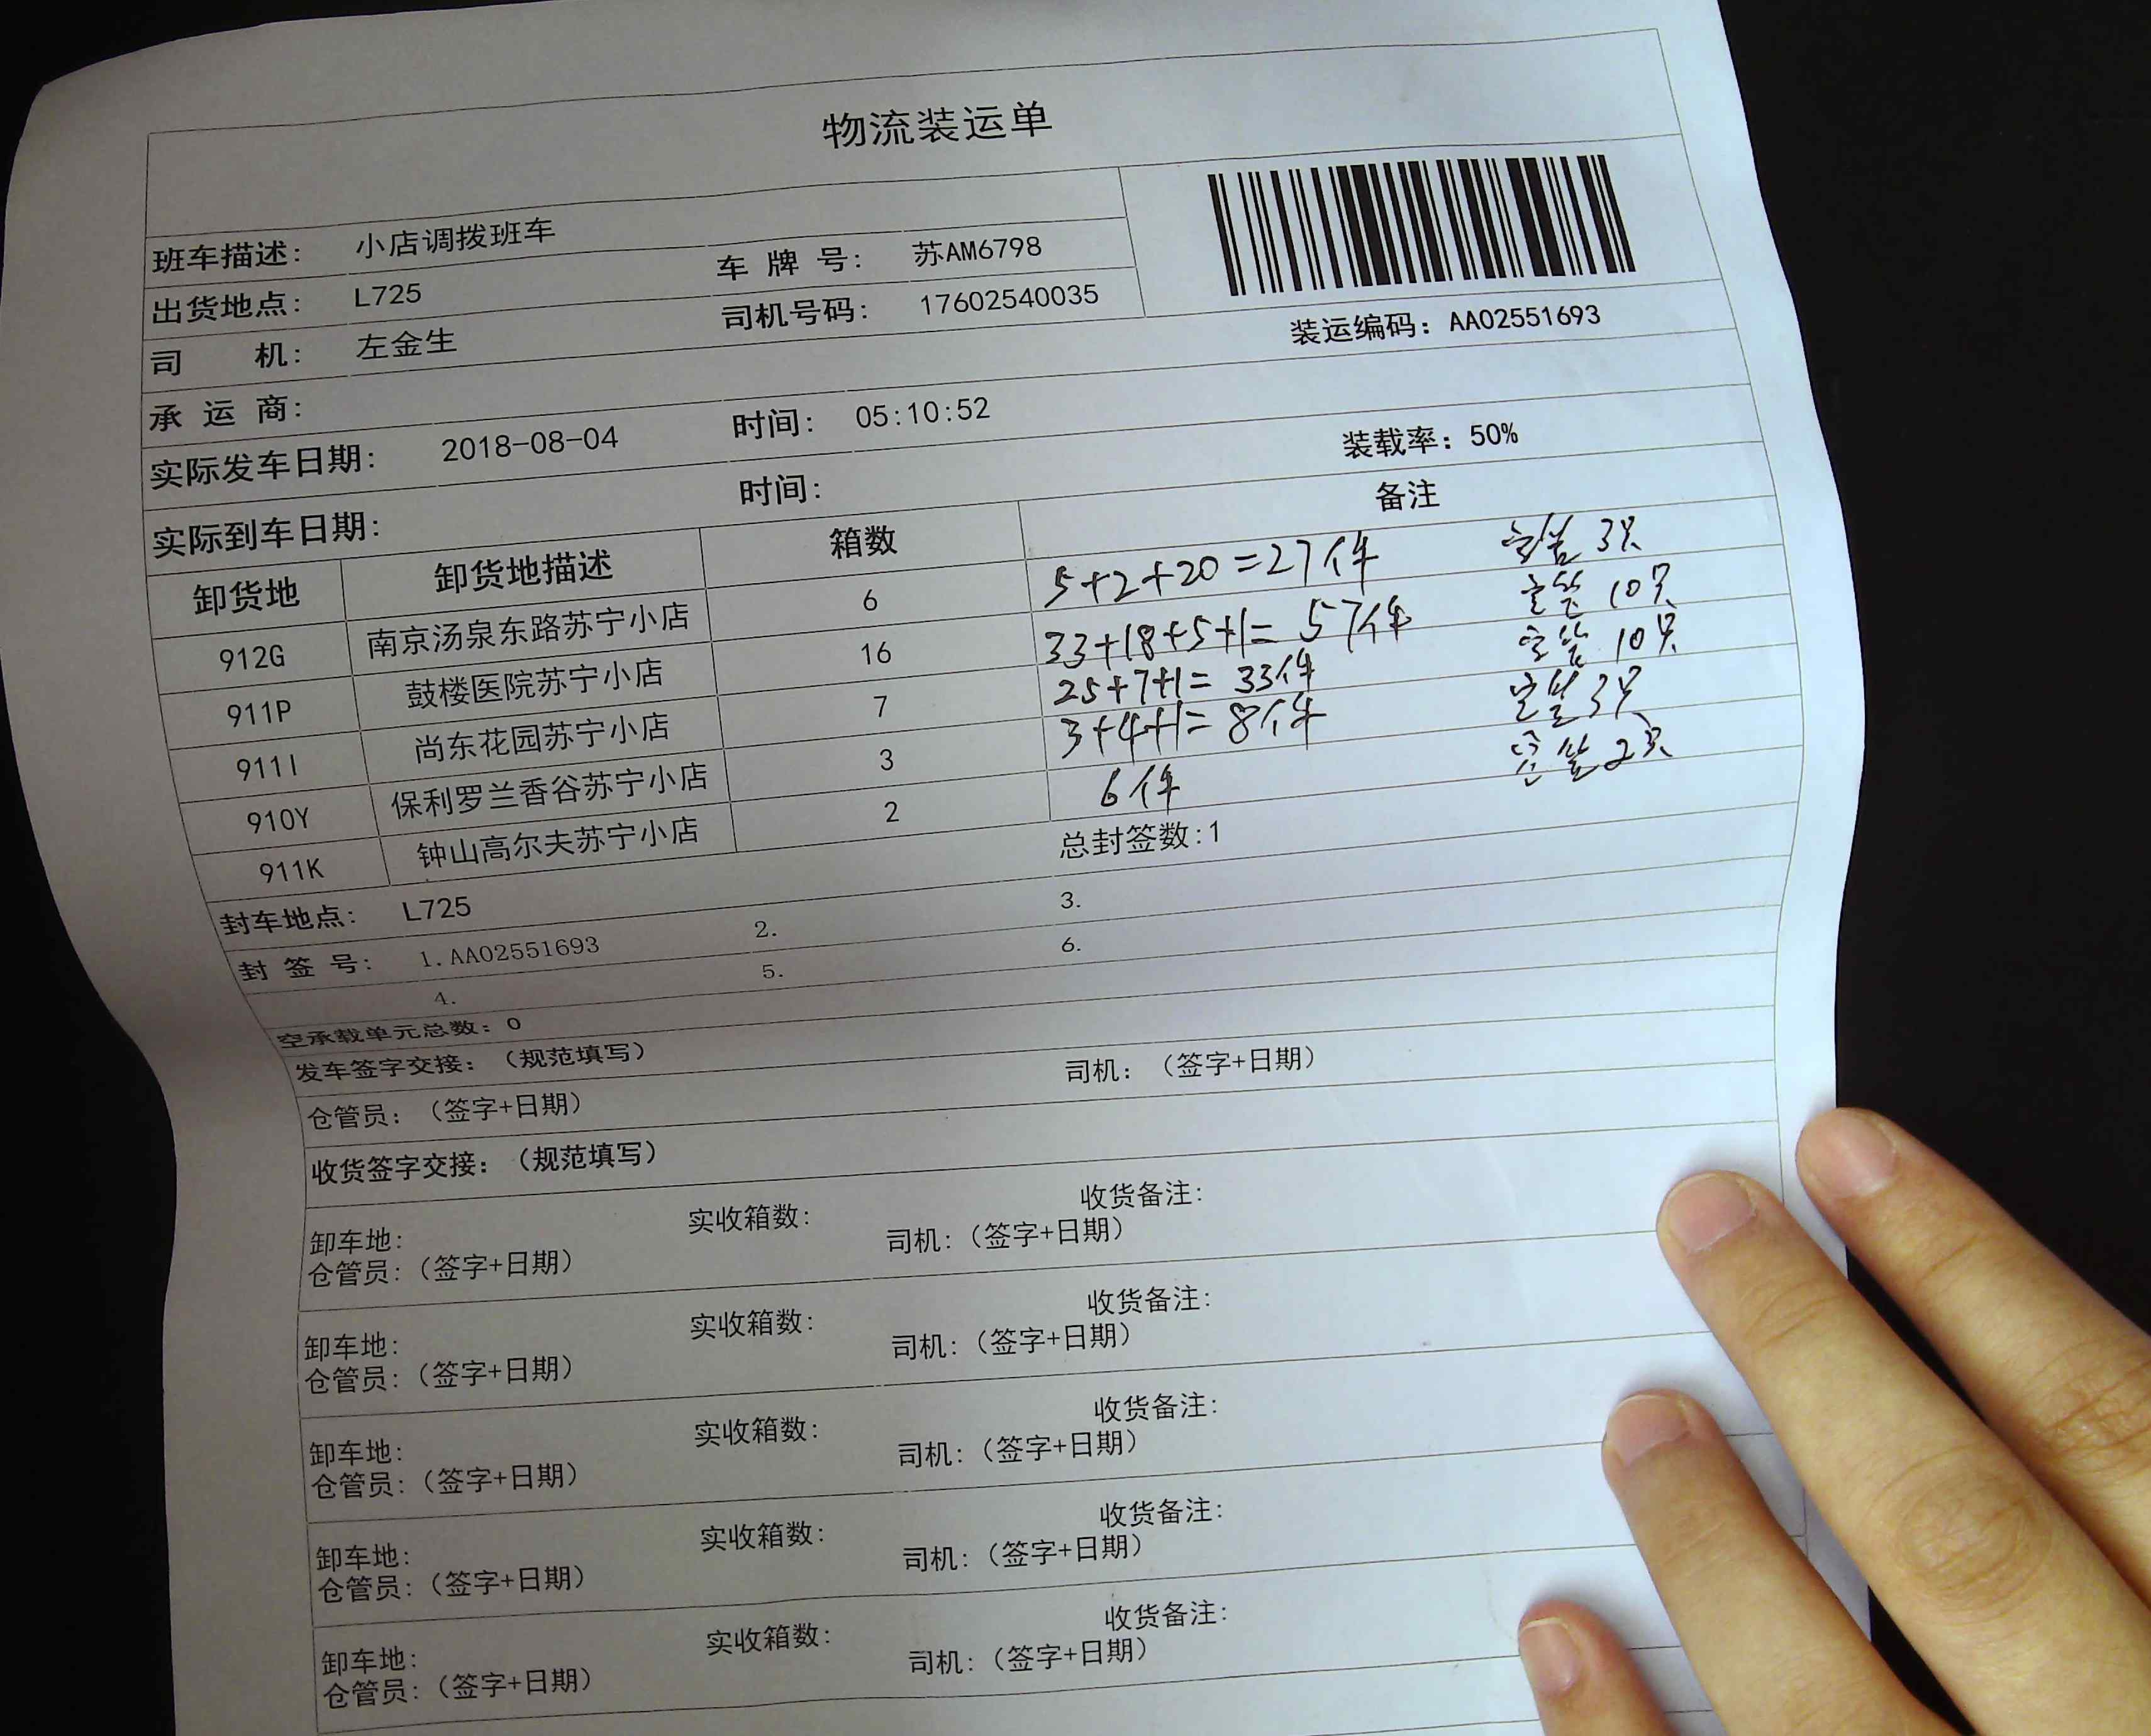 物流装运单
班车描述: 小店调拨班车
出货地点: L725 车 牌 号: 苏AM6798
司 机: 左金生 司机号码: 17602540035
装运编码: AA02551693
承 运 商:
实际发车日期: 2018-08-04 时间: 05:10:52
装载率: 50%
实际到车日期: 时间:
卸货地 卸货地描述 箱数 备注
912G 南京汤泉东路苏宁小店 6 5+2+20=27件 3只
911P 鼓楼医院苏宁小店 16 33+18+5+1=57件 10只
911I 尚东花园苏宁小店 7 25+7+1=33件 10只
910Y 保利罗兰香谷苏宁小店 3 3+4+1=8件 3只
911K 钟山高尔夫苏宁小店 2 6件 2只
封车地点: L725 总封签数:1
封 签 号: 1.AA02551693 2. 3.
4. 5. 6.
空承载单元总数: 0
发车签字交接: (规范填写)
仓管员: (签字+日期) 司机: (签字+日期)
收货签字交接: (规范填写)
卸车地: 实收箱数: 收货备注:
仓管员: (签字+日期) 司机: (签字+日期)
卸车地: 实收箱数: 收货备注:
仓管员: (签字+日期) 司机: (签字+日期)
卸车地: 实收箱数: 收货备注:
仓管员: (签字+日期) 司机: (签字+日期)
卸车地: 实收箱数: 收货备注:
仓管员: (签字+日期) 司机: (签字+日期)
卸车地: 实收箱数: 收货备注:
仓管员: (签字+日期) 司机: (签字+日期)